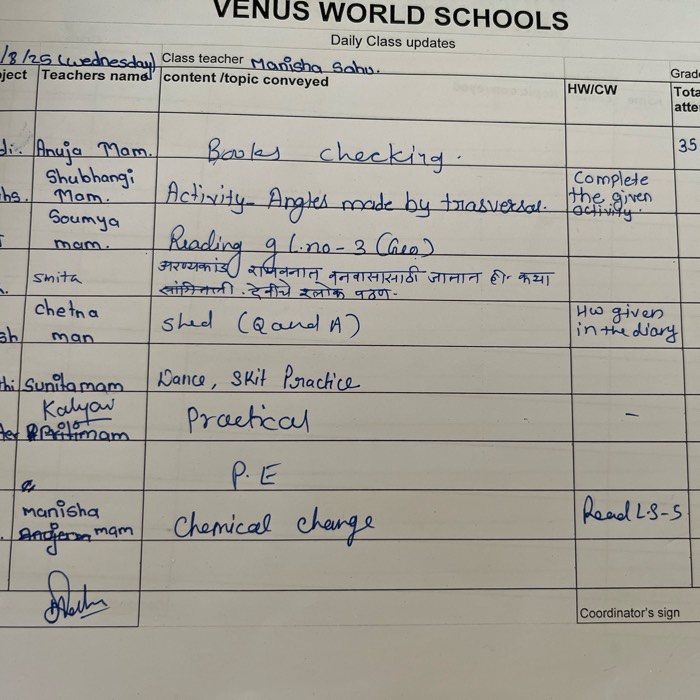 VENUS WORLD SCHOOLS
Daily Class updates
/8/25 (Wednesday) Class teacher Manisha Sahu.
ject Teachers name content /topic conveyed HW/CW Grade
Tota
atte
di. Anuja Mam. Books checking. 35
hs. Shubhangi Mam. Activity- Angles made by trasversal. Complete the given activity.
Soumya mam. Reading g L.no-3 (Geo)
smita अरण्यकांड वनवासासाठी जातात ही. कथा
सांगितली. देवीचे श्लोक पठण.
sh chetna man shed (Q and A) Hw given in the diary
thi Sunita mam Dance, Skit Practice
Kalyani mam Practical -
P.E
manisha mam Chemical change Read L.S-5
Coordinator's sign